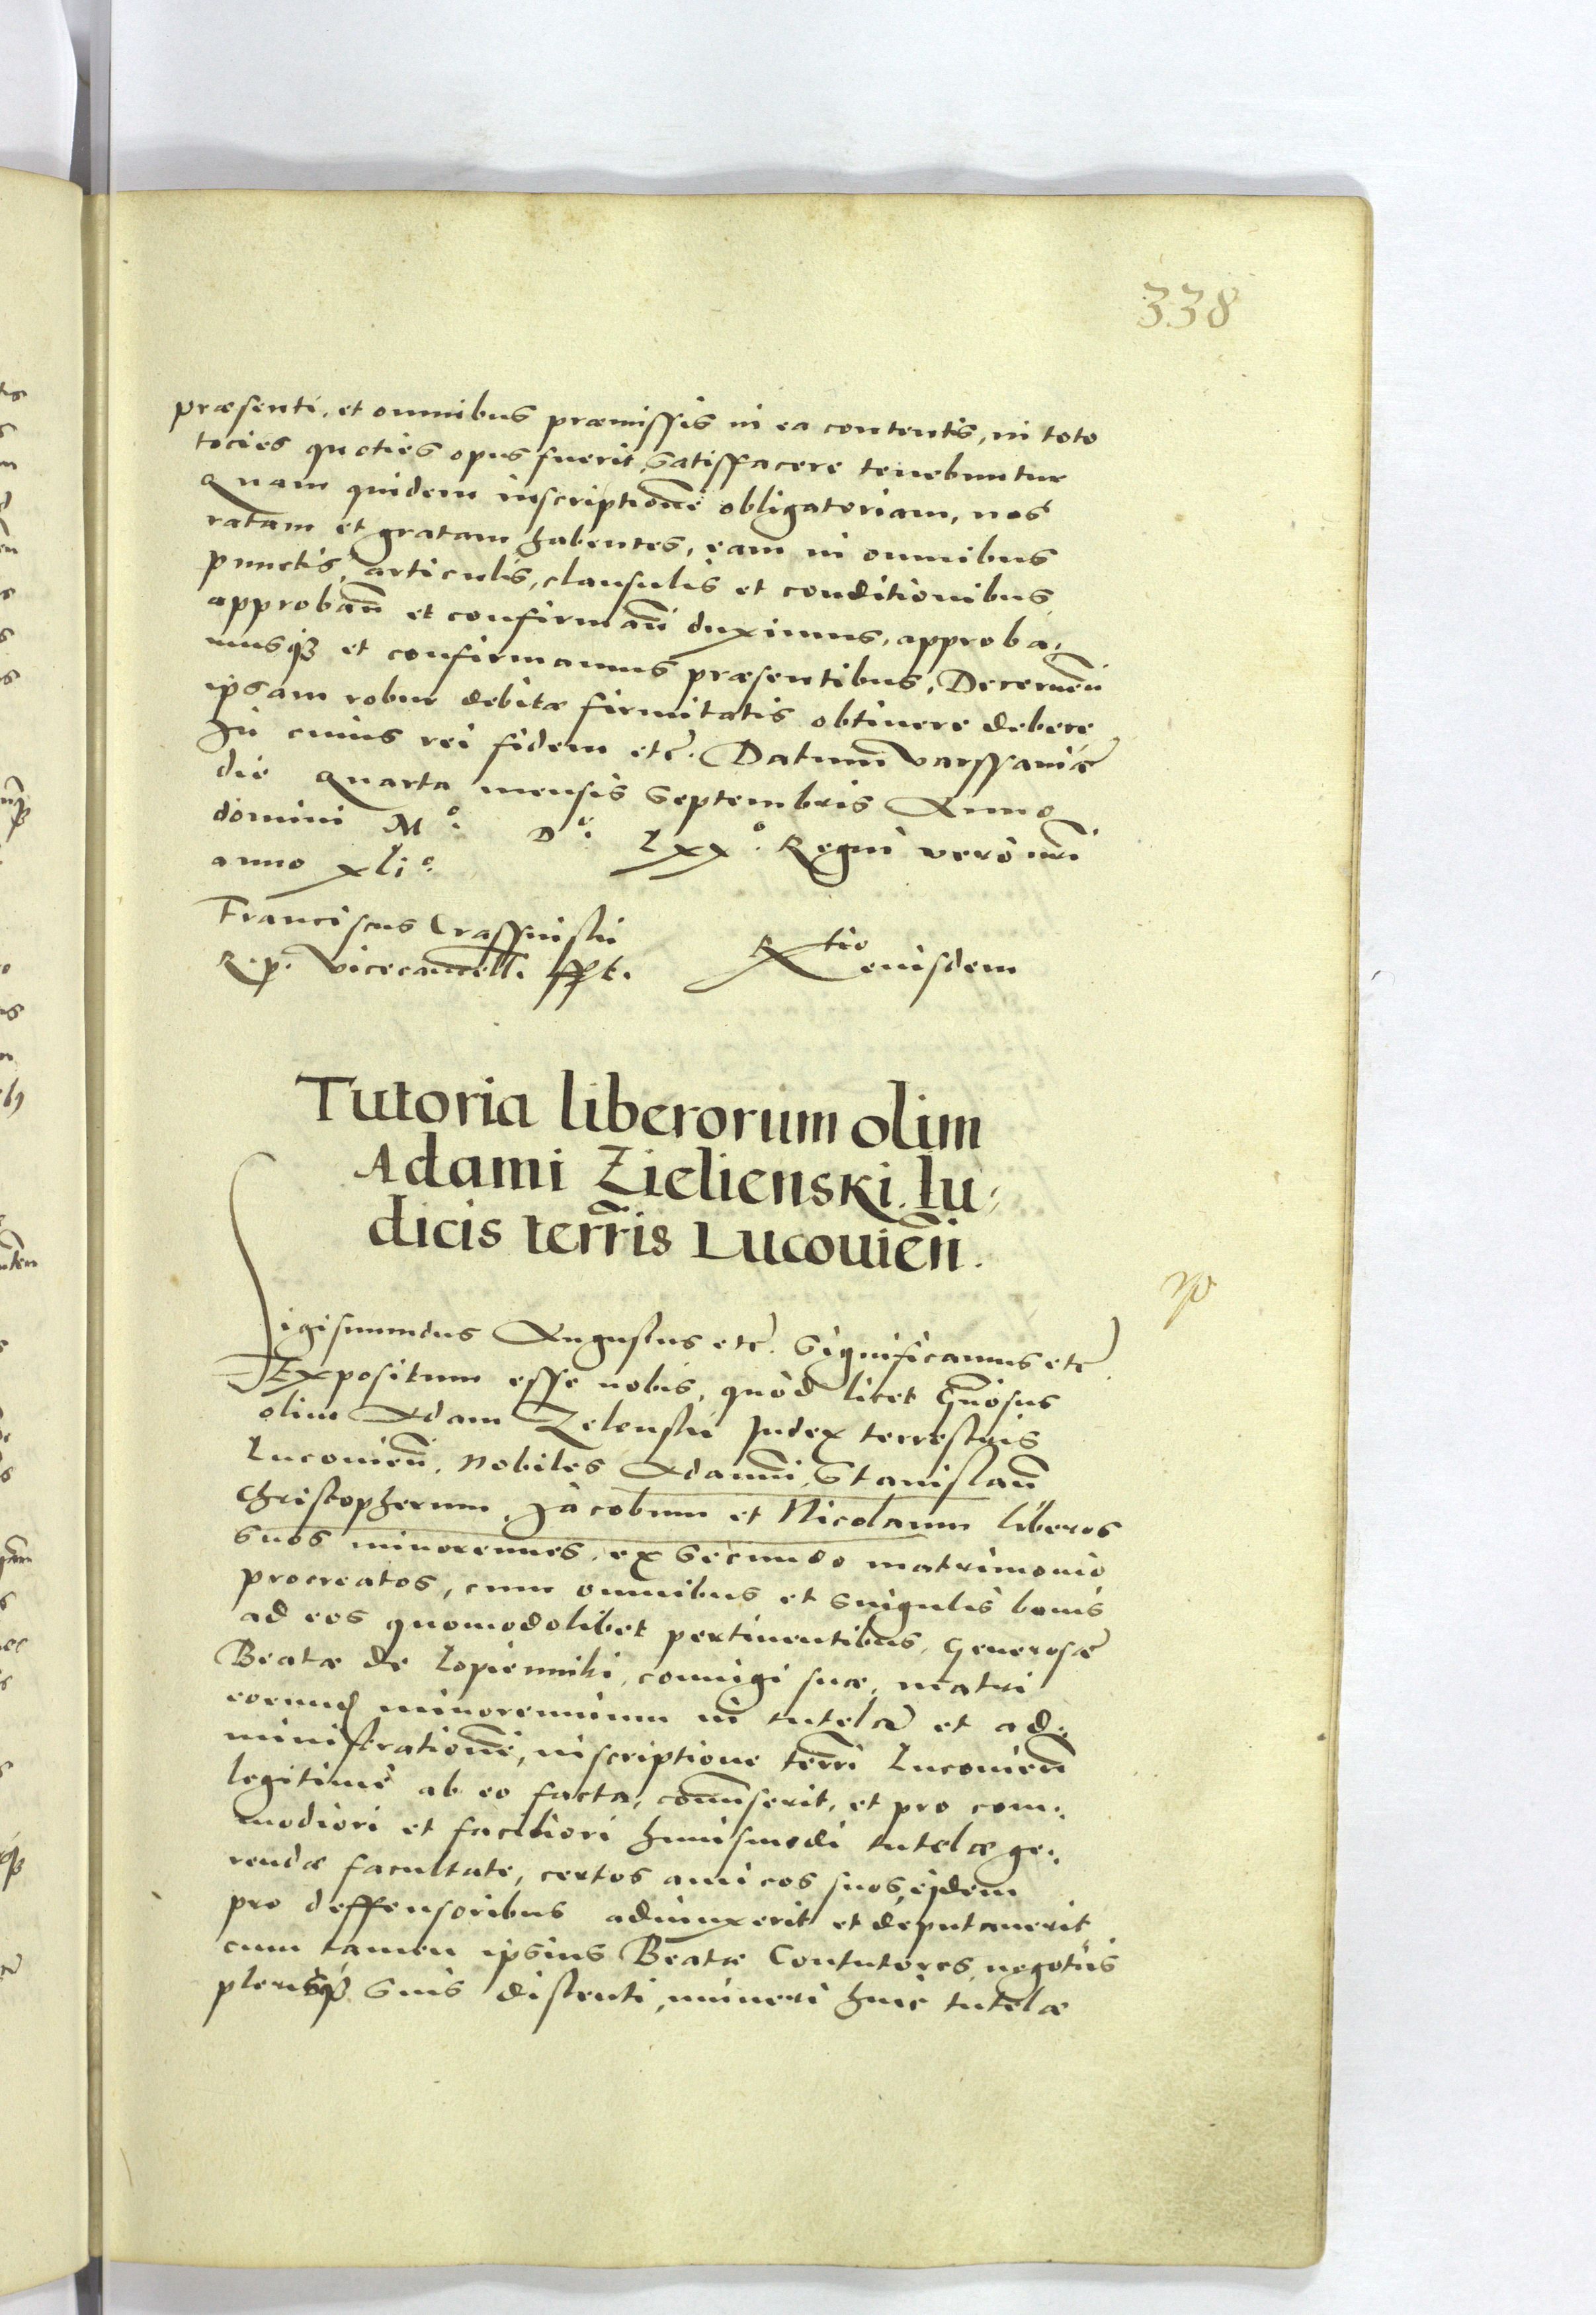 338
præsenti, et omnibus præmissis in ea contentis, in toto
tocies quoties opus fuerit, satisfacere tenebuntur
Quam quidem inscriptionē obligatoriam, nos
ratam et gratam habentes, eam in omnibus
punctis, articulis, clausulis et conditionibus
approbañ et confirmañ duximus, approba,
musq3 et confirmamus præsentibus, Decerneñ
ipsam robur debitæ firmitatis obtinere debere
In cuius rei fidem etc̃. Datum varssaviæ
die quarta mensis Septembris Anno
domini M°: D°: Lxx°: Regni vero nr̃i
anno xli°:
Franciscus Crassinskii
R. p. vicecancell. sspt.
Rtio eiusdem
Tutoria liberorum olim
Adami Zielienski Iu,
dicis terr̃ris Lucouieñ.
Sigismundus Augustus etc̃. Significamus etc̃.
Expositum esse nobis, quòd licet Gñosus
olim Adam Zelenskii Iudex terrestris
Lucouieñ, Nobiles Adamũ, Stanislaũ
Christopherum, Jacobum et Nicolaum liberos
suos minorennes, ex secundo matrimonio
procreatos, cum omnibus et singulis bonis
ad eos quomodolibet pertinentibus, Generosæ
Beatæ de Lopienniki, coniugi suæ, matri
eorund minorennium in tutelã et ad:,
ministrationẽ, inscriptione terr̃i Lucouieñ
legitimè ab eo facta, com̃iserit, et pro com:,
modiori et faciliori huiusmodi tutelæ ge:,
rendæ facultate, certos amicos suos, eidem
pro deffensoribus adiunxerit et deputauerit,
cum tamen ipsius Beatæ Contutores, negotiis
plerisq3 suis distenti, muneri huic tutelæ